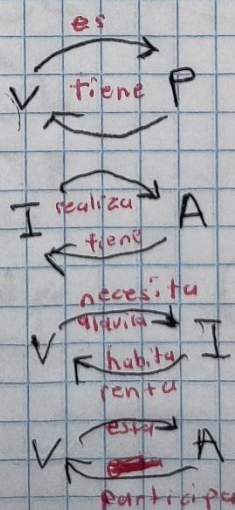 es
V tiene P
I realiza A
tiene
necesita
V alquila I
habita
renta
esta
V A
participa